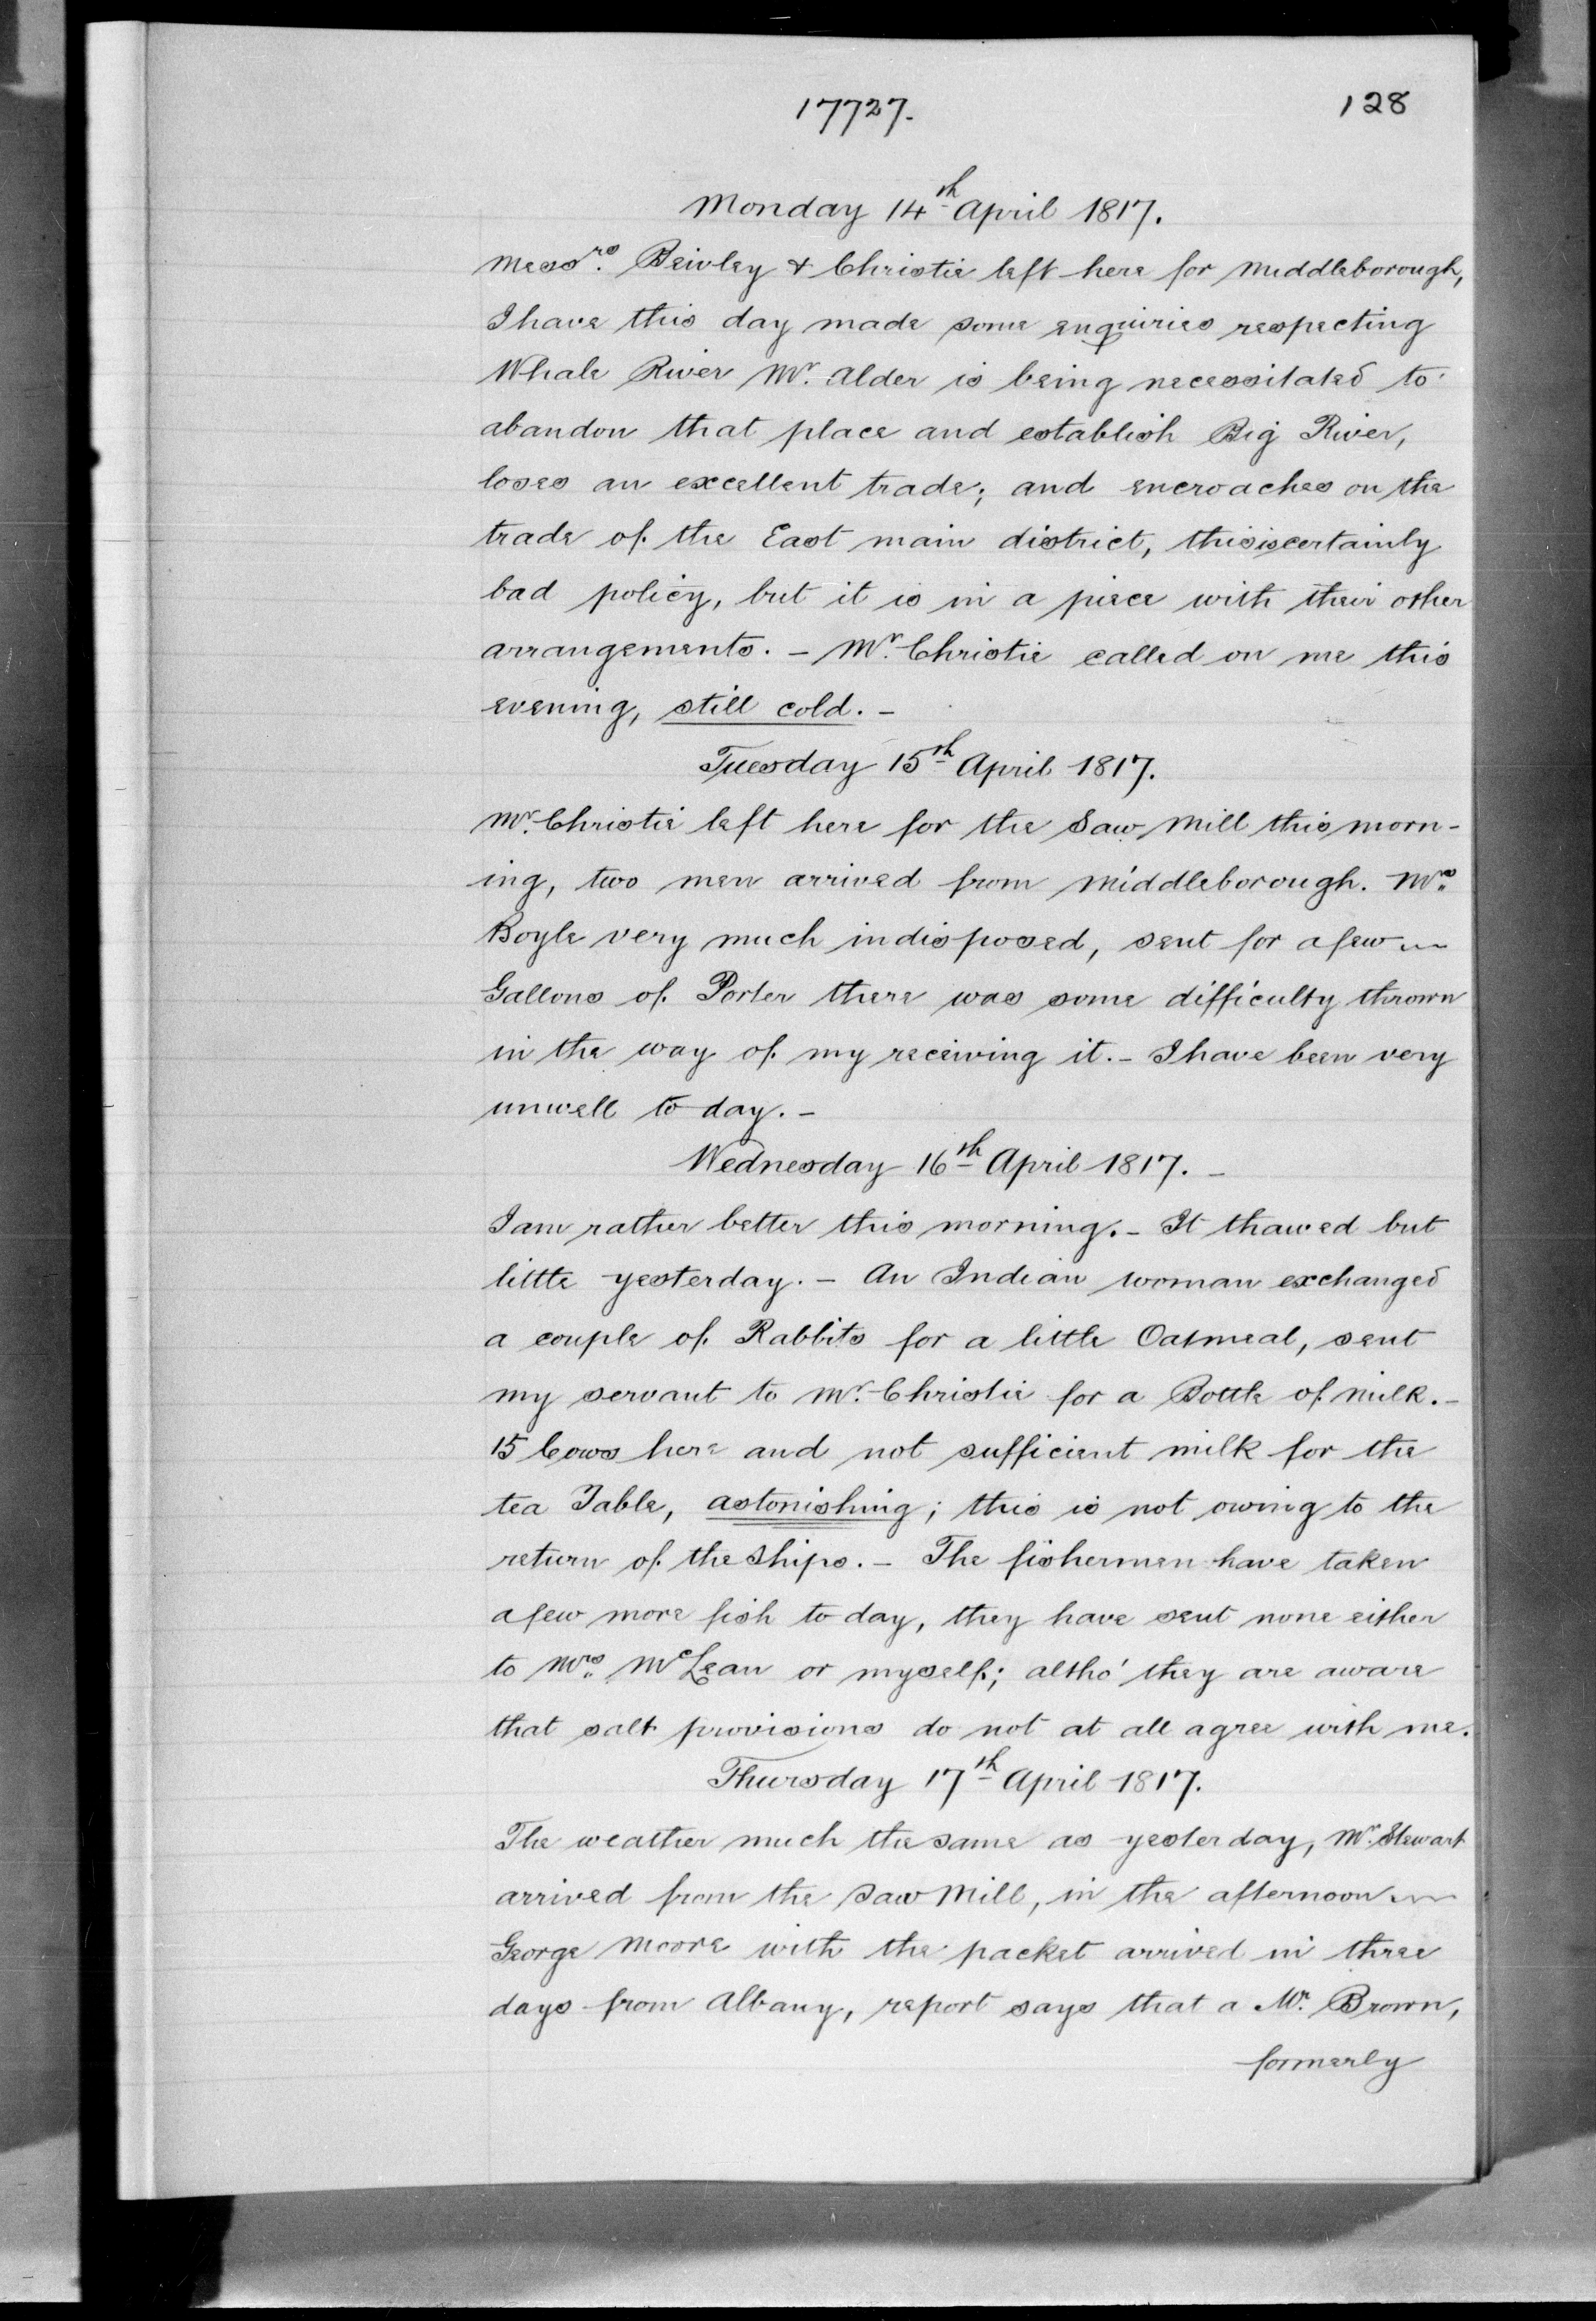 17727.
128
Monday 14th April 1817.
Messrs. Beioley & Christie left here for Middleborough,
I have this day made some enquiries respecting
Whale River Mr. Alder is being necessitated to
abandon that place and establish Big River,
loses an excellent trade; and encroaches on the
trade of the East main district, this is certainly
bad policy, but it is in a piece with their other
arrangements. – Mr. Christie called on me this
evening, still cold. –
Tuesday 15th April 1817.
Mr. Christie left here for the Saw Mill this morn-
ing, two men arrived from Middleborough. Mrs.
Boyle very much indisposed, sent for a few
Gallons of Porter there was some difficulty thrown
in the way of my receiving it. – I have been very
unwell to day. –
Wednesday 16th April 1817. –
I am rather better this morning. – It thawed but
little yesterday. – An Indian woman exchanged
a couple of Rabbits for a little Oatmeal, sent
my servant to Mr. Christie for a Bottle of milk. –
15 Cows here and not sufficient milk for the
tea Table, astonishing; this is not owing to the
return of the Ships. – The fishermen have taken
a few more fish to day, they have sent none either
to Mrs. McLean or myself; altho' they are aware
that salt provisions do not at all agree with me.
Thursday 17th April 1817.
The weather much the same as yesterday, Mr. Stewart
arrived from the Saw Mill, in the afternoon
George Moore with the packet arrived in three
days from Albany, report says that a Mr. Brown,
formerly